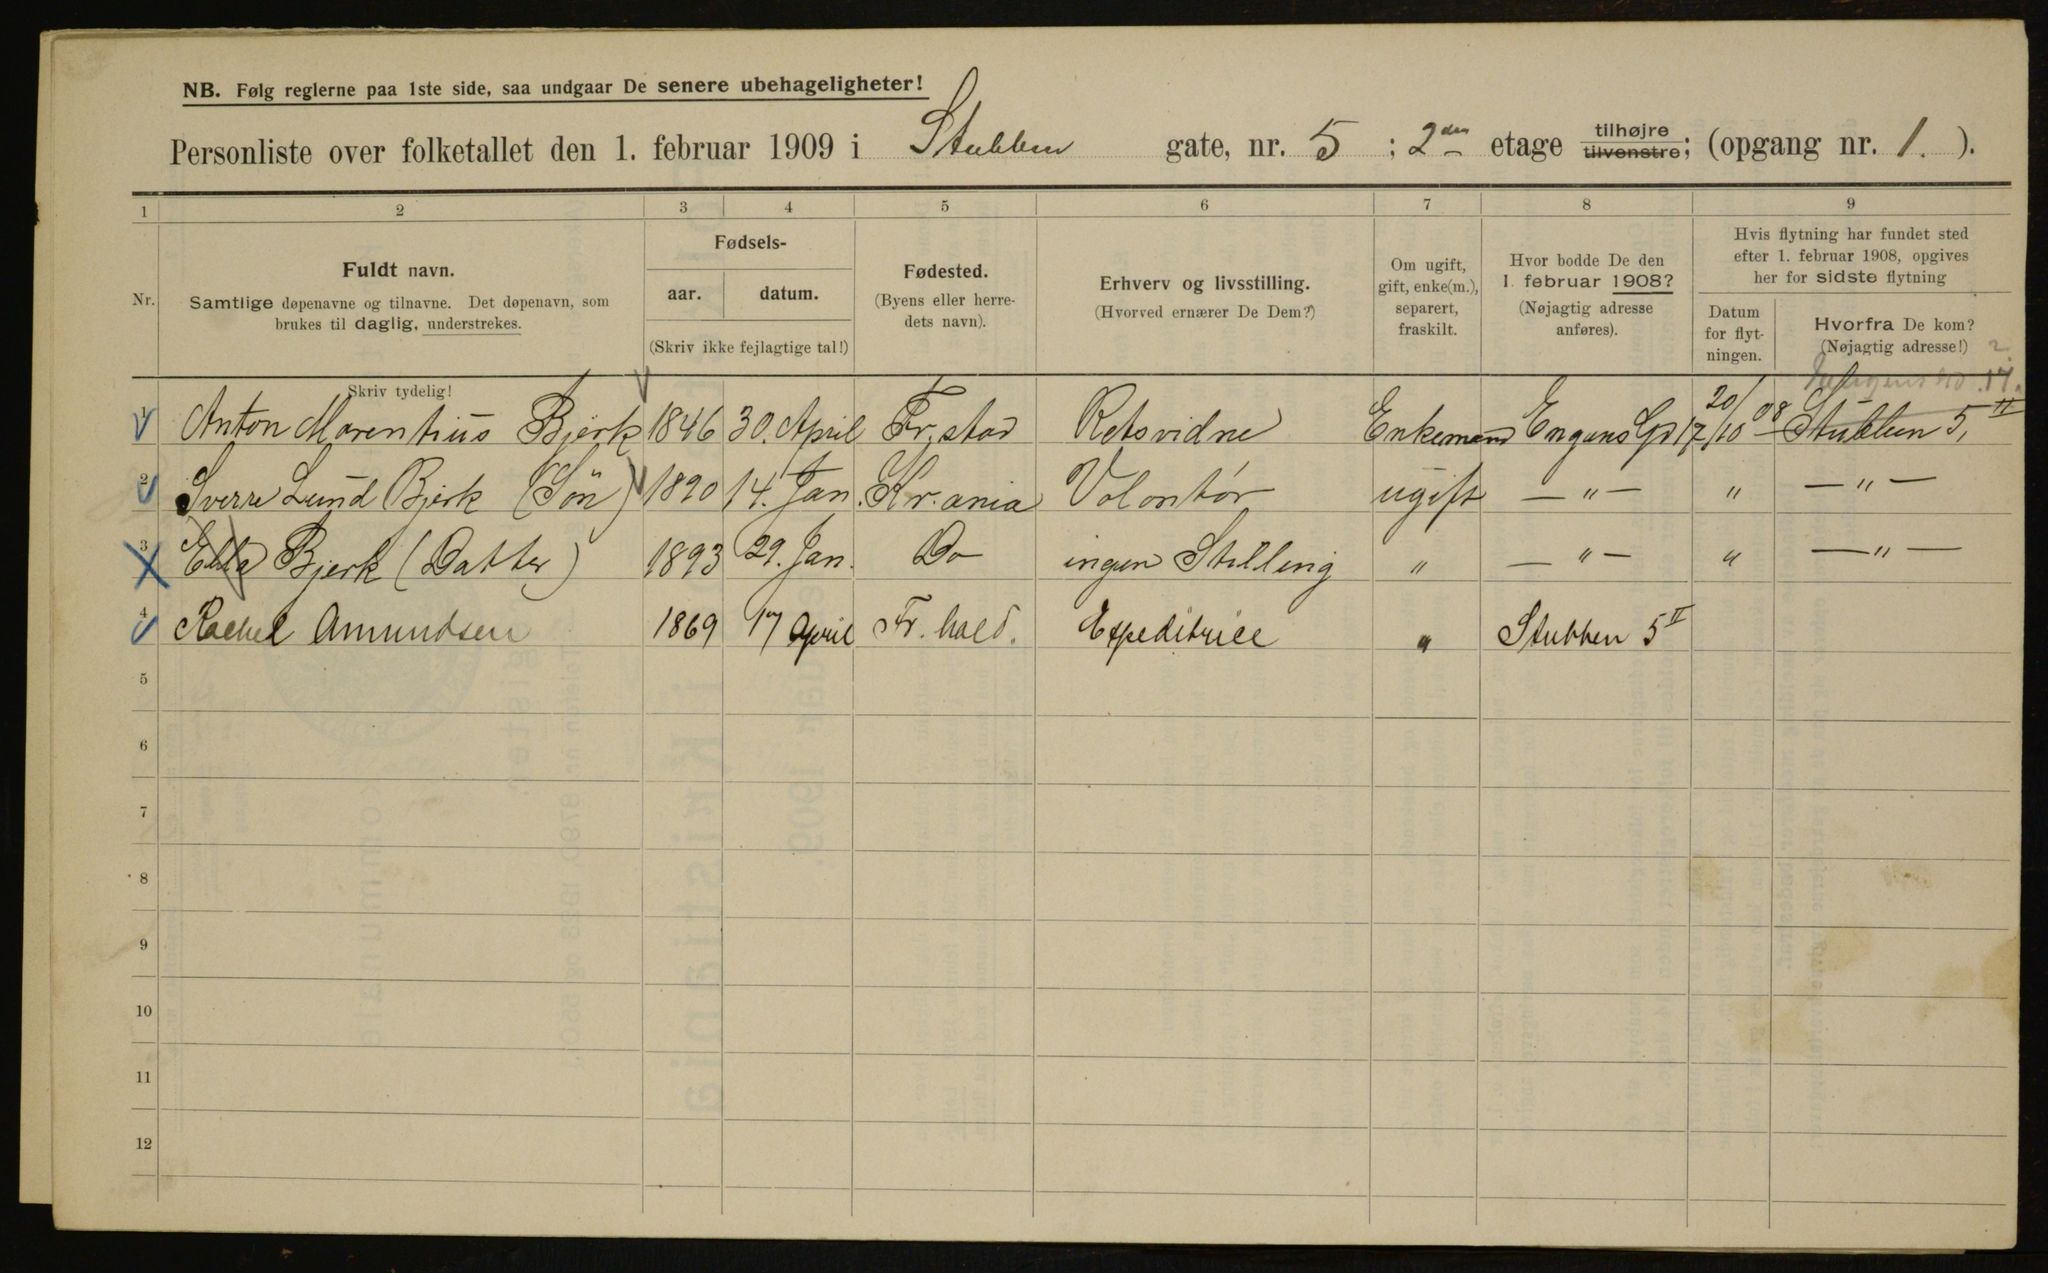 NB. Følg reglerne paa 1ste side, saa undgaar De senere ubehageligheter!
Personliste over folketallet den 1. februar 1909 i Stubben gate, nr. 5 ; 2den etage tilhøjre tilvenstre; (opgang nr. 1. ).
1 2 3 4 5 6 7 8 9
Nr.
Fuldt navn.
Samtlige døpenavne og tilnavne. Det døpenavn, som
brukes til daglig, understrekes.
Skriv tydelig!
Fødsels-
aar. datum.
(Skriv ikke fejlagtige tal!)
Fødested.
(Byens eller herre-
dets navn).
Erhverv og livsstilling.
(Hvorved ernærer De Dem?)
Om ugift,
gift, enke(m.),
separert,
fraskilt.
Hvor bodde De den
1. februar 1908?
(Nøjagtig adresse
anføres).
Hvis flytning har fundet sted
efter 1. februar 1908, opgives
her for sidste flytning
Datum
for flyt-
ningen.
Hvorfra De kom?
(Nøjagtig adresse!)
2
17.
1 Anton Marentius Bjerk 1846 30. April Fr.stad Retsvidne Enkemand Engens Gd 17 20/10 08 Stubben 5, II
2 Sverre Lund Bjerk (Sön) 1890 14. Jan. Kr.ania Volontør ugift — " — " — " —
3 Ella Bjerk (Datter) 1893 29. Jan. Do ingen Stilling " — " — " — " —
4 Rachel Amundsen 1869 17 April Fr. hald. Expeditrice " Stubben 5 II
5
6
7
8
9
10
11
12